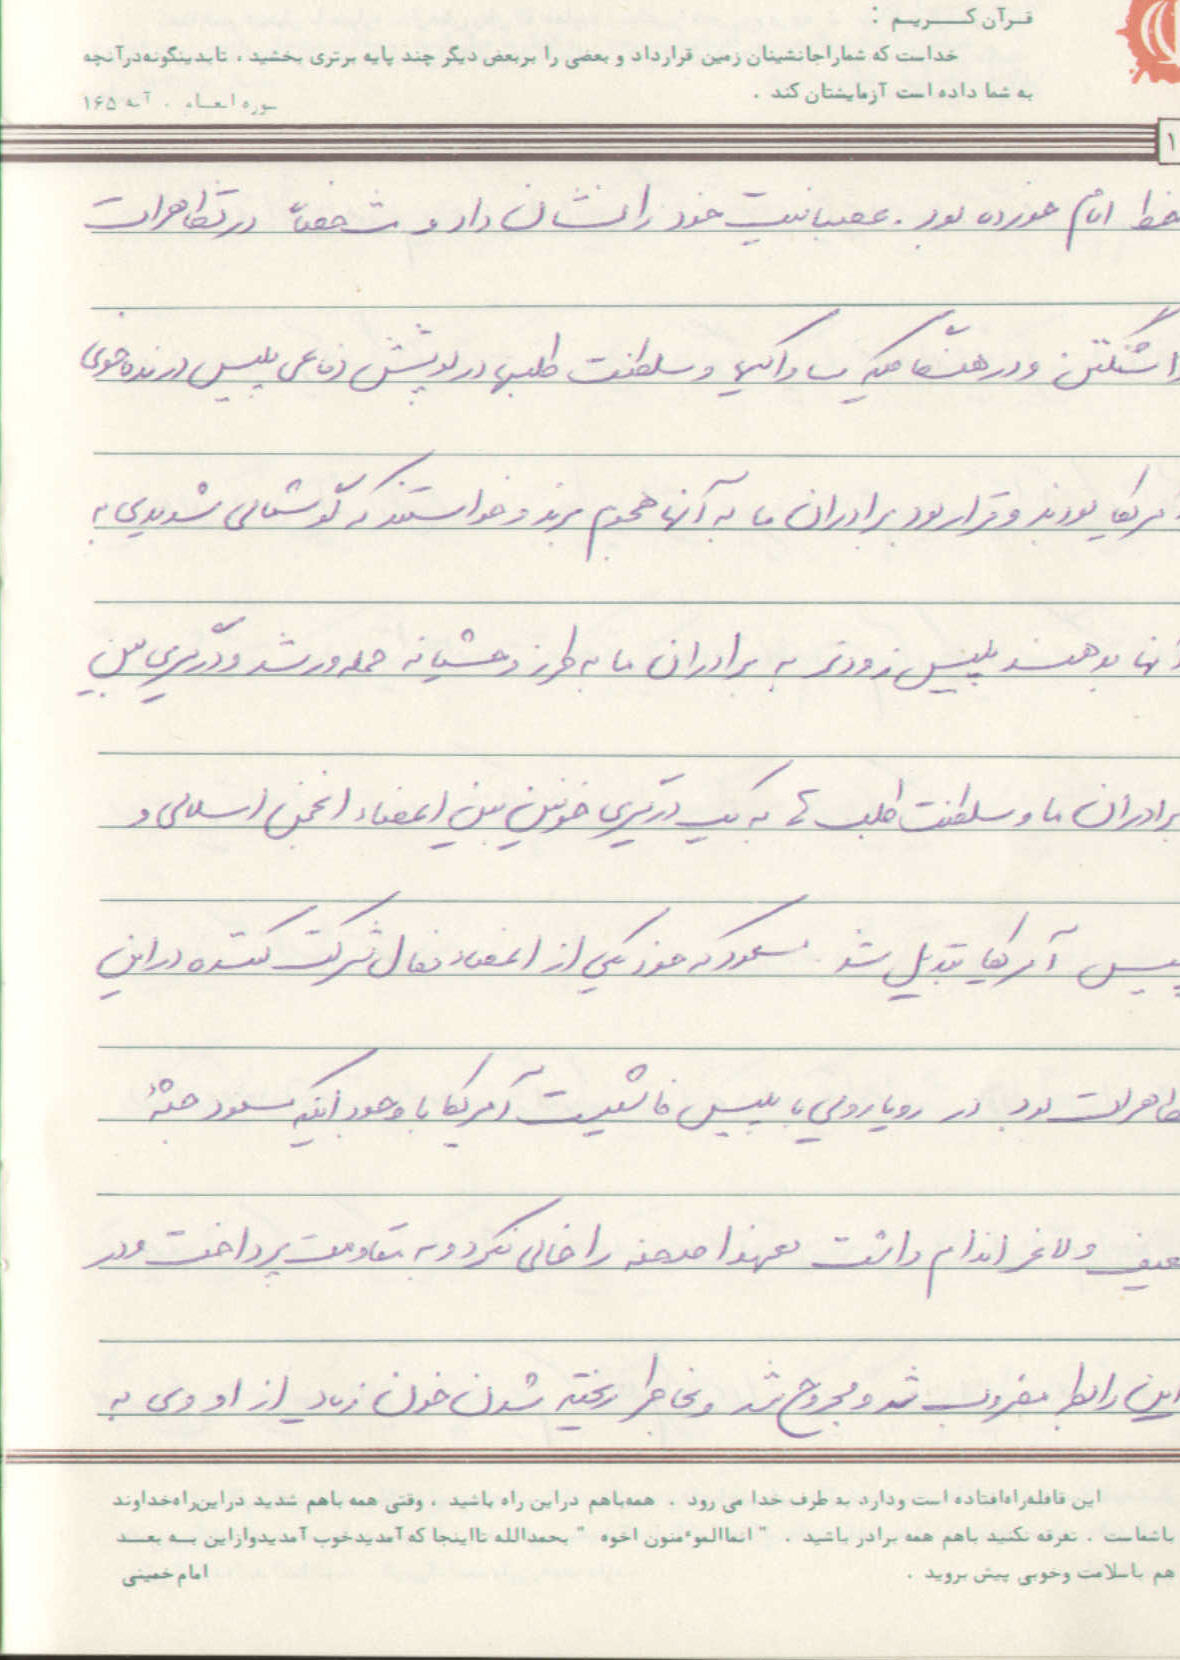 قرآن کـــریـم :
خداست که شماراجانشینان زمین قرارداد و بعضی را بربعض دیگر چند پایه برتری بخشید ، تابدینگونه‌درآنچه
به شما داده است آزمایشتان کند .
سوره انعـام . آیه ۱۶۵
۱
خط امام خورده بود . عصبانیت خود را نشان داد و شخصاً در تظاهرات
واشنگتن و در هنگامیکه ساواکیها و سلطنت طلبها در پوشش دفاعی پلیس درنده‌خوی
آمریکا بودند و قرار بود برادران ما به آنها هجوم برند و خواستند که گوشمالی شدیدی به
آنها بدهند پلیس زودتر به برادران ما به طرز وحشیانه حمله‌ور شد و درگیری بین
برادران ما و سلطنت طلب‌ها به یک درگیری خونین بین اعضاء انجمن اسلامی و
پلیس آمریکا تبدیل شد . مسعود که خود یکی از اعضاء فعال شرکت کننده در این
تظاهرات بود در رویارویی با پلیس فاشیست آمریکا با وجود اینکه مسعود جثهٔ
ضعیف و لاغر اندام داشت معهذا صحنه را خالی نکرد و به مقاومت پرداخت و در
این رابطه مضروب شد و مجروح شد و بخاطر ریخته شدن خون زیاد از او وی به
این قافله‌راه‌افتاده است ودارد به طرف خدا می رود . همه‌باهم دراین راه باشید ، وقتی همه باهم شدید دراین‌راه‌خداوند
باشماست . تفرقه نکنید باهم همه برادر باشید . " انماالموٴمنون اخوه " بحمدالله تااینجا که آمدیدخوب آمدیدوازاین بــه بعــد
هم باسلامت وخوبی پیش بروید .
امام خمینی